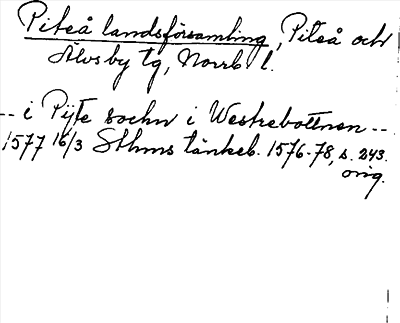 Piteå landsförsamling, Piteå och
Älvsby tg, Norrb l.
-- i Pijte sochn i Westrebottnen --
1577 16/3 Sthms tänkeb. 1576-78, s. 243.
orig.